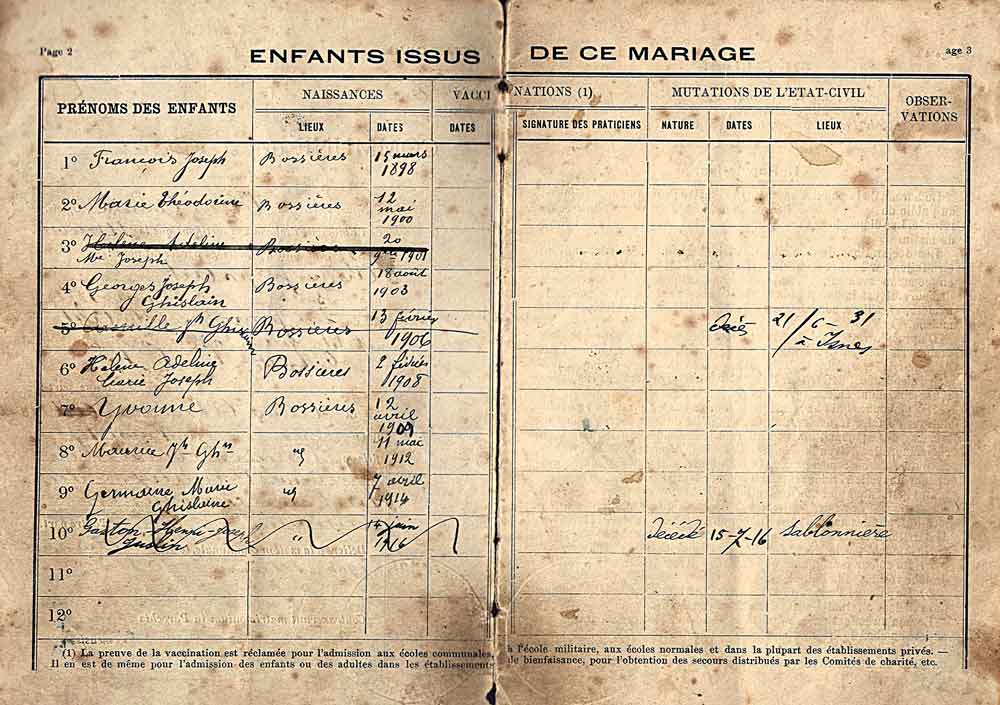 Page 2
ENFANTS ISSUS DE CE MARIAGE
age 3
PRÉNOMS DES ENFANTS
NAISSANCES
VACCI NATIONS (1)
MUTATIONS DE L'ETAT-CIVIL
OBSER-
VATIONS
LIEUX
DATES
DATES
SIGNATURE DES PRATICIENS
NATURE
DATES
LIEUX
1° François Joseph Bossières 15 mars
1898
2° Marie Théodorine Bossières 12
mai
1900
3° Hélène Adeline Bossières 20
Mie Joseph 9bre 1901
4° Georges Joseph Bossières 18 août
Ghislain 1903
5° Jh Ghislain Bossières 13 février
1906
décès 21/6-31
à Isnes
6° Hélène Adeline Bossières 2 février
Marie Joseph 1908
7° Yvonne Bossières 12
avril
1909
8° Maurice Jh Ghn " 11 mai
1912
9° Germaine Marie " 7 avril
Ghislaine 1914
10° Gaston Henri-Joseph " juin
1916
décédé 15-7-16 Sablonnière
11°
12°
(1) La preuve de la vaccination est réclamée pour l'admission aux écoles communales, à l'école militaire, aux écoles normales et dans la plupart des établissements privés. —
Il en est de même pour l'admission des enfants ou des adultes dans les établissements de bienfaisance, pour l'obtention des secours distribués par les Comités de charité, etc.